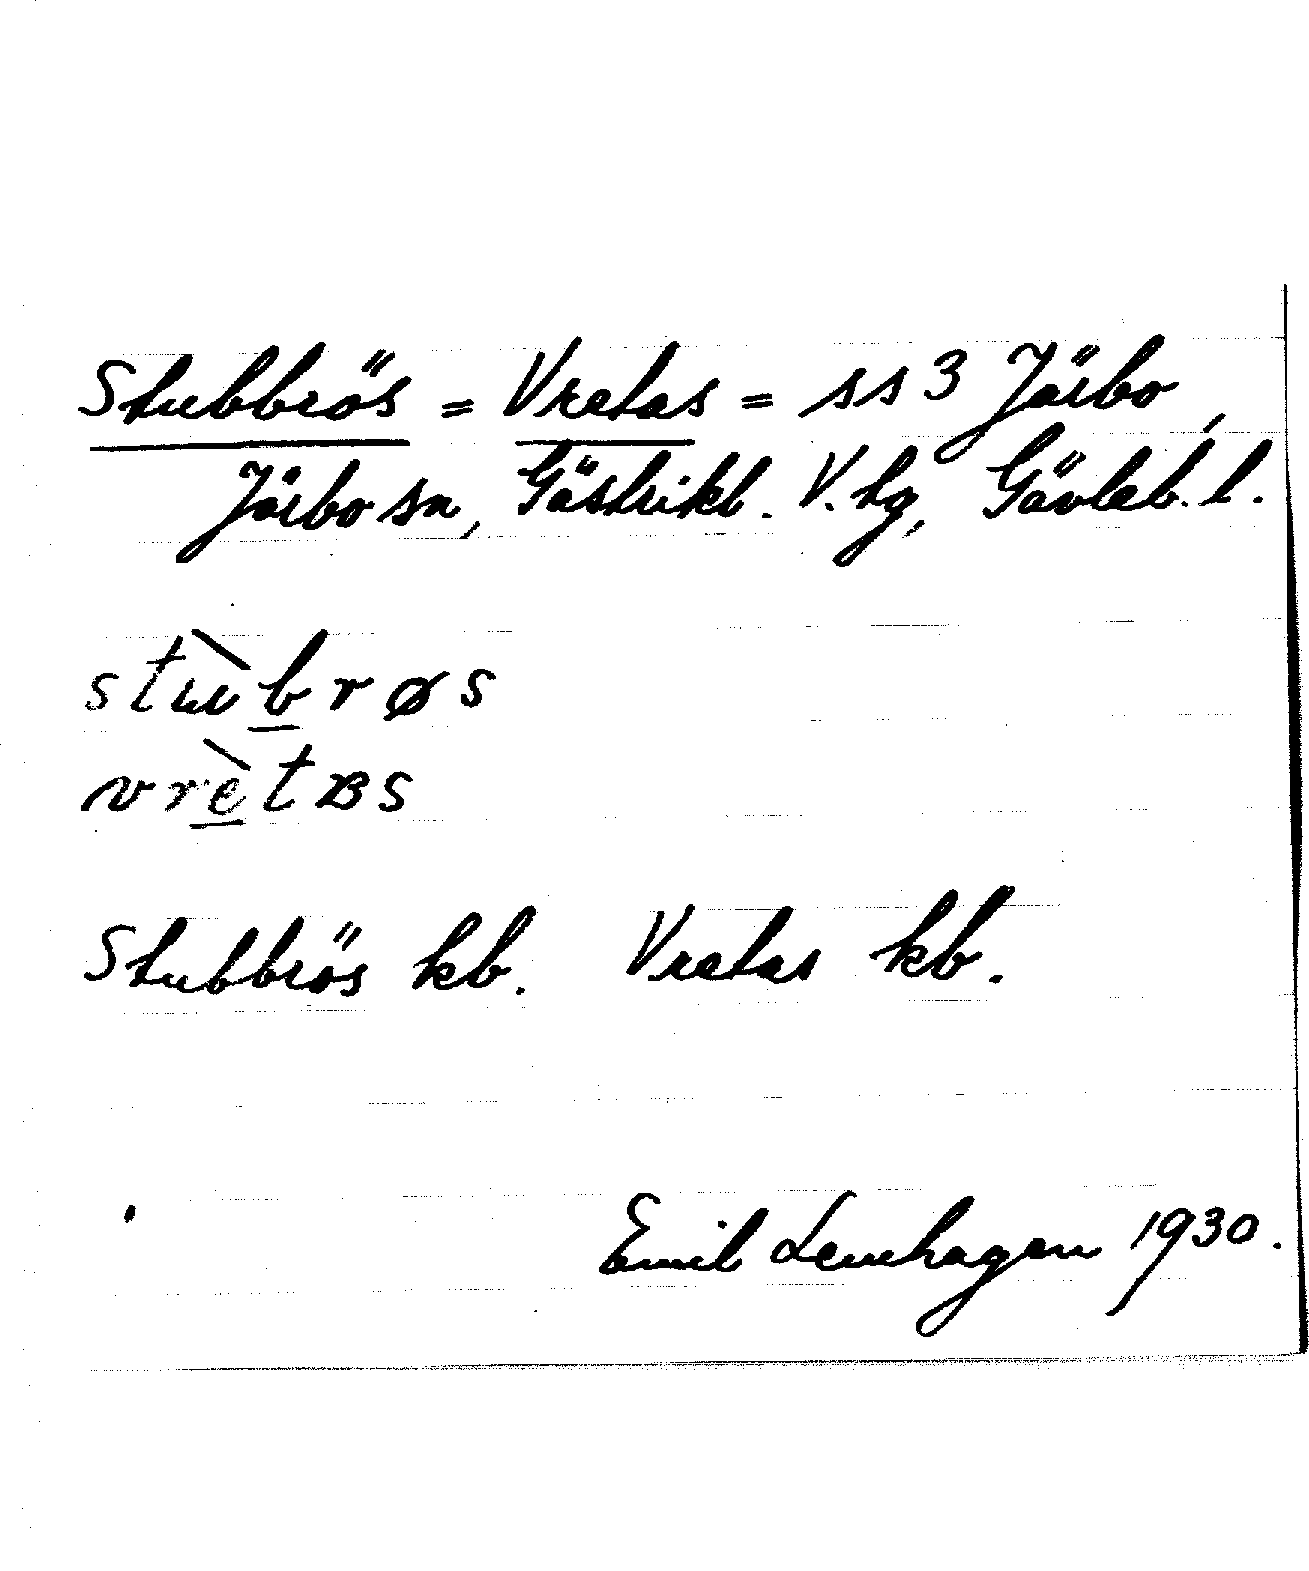 Stubbrös = Vretas = ss 3 Järbo,
Järbo sn, Gästrikl. V. hg, Gävleb. l.
stùbrøs
vrètʙs
Stubbrös kb. Vretas kb.
Emil Lenhagen 1930.